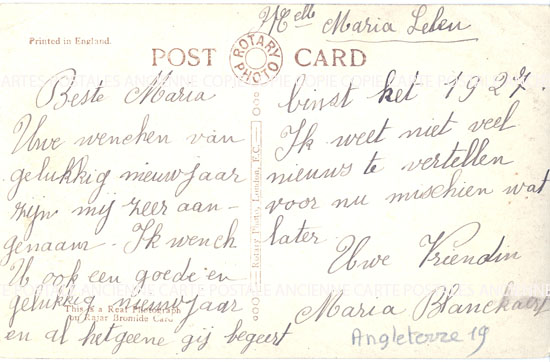 Melle Maria Lelen
Printed in England.
POST CARD
ROTARY PHOTO
Beste Maria
Uwe wenchen van
gelukkig nieuwjaar
zijn mij zeer aan-
genaam. Ik wench
U ook een goede en
gelukkig nieuwjaar
en al hetgeene gij begeert
This is a Real Photograph
on Rajar Bromide Card
Rotary Photo, London, E.C.
binst het 1927.
Ik weet niet veel
nieuws te vertellen
voor nu mischien wat
later.
Uwe Vriendin
Maria Blanckaert
Angleterre 19
CARTES POSTALES ANCIENNE COPIE COPIE COPIE
CARTE POSTALE ANCIENNE CARTE POSTALE ANCIENNE